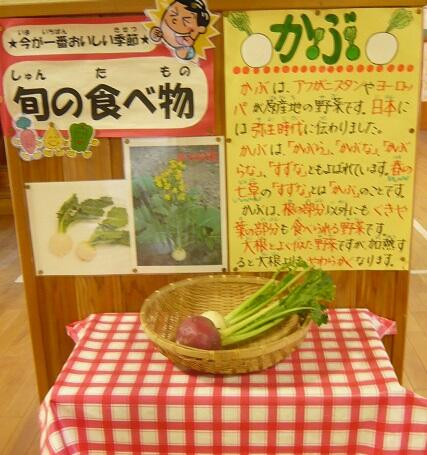 いま いちばん きせつ
★今が一番おいしい季節★
しゅん た もの
旬の食べ物
かぶ
かぶは、アフガニスタンやヨーロッ
パが原産地の野菜です。日本に
は弥生時代に伝わりました。
かぶは、「かぶら」、「かぶな」、「かぶ
らな」、「すずな」ともよばれています。春の
七草の「すずな」とは「かぶ」のことです。
かぶは、根の部分以外にもくきや
葉の部分も食べられる野菜です。
大根とよくにた野菜ですが加熱す
ると大根よりもやわらかくなります。